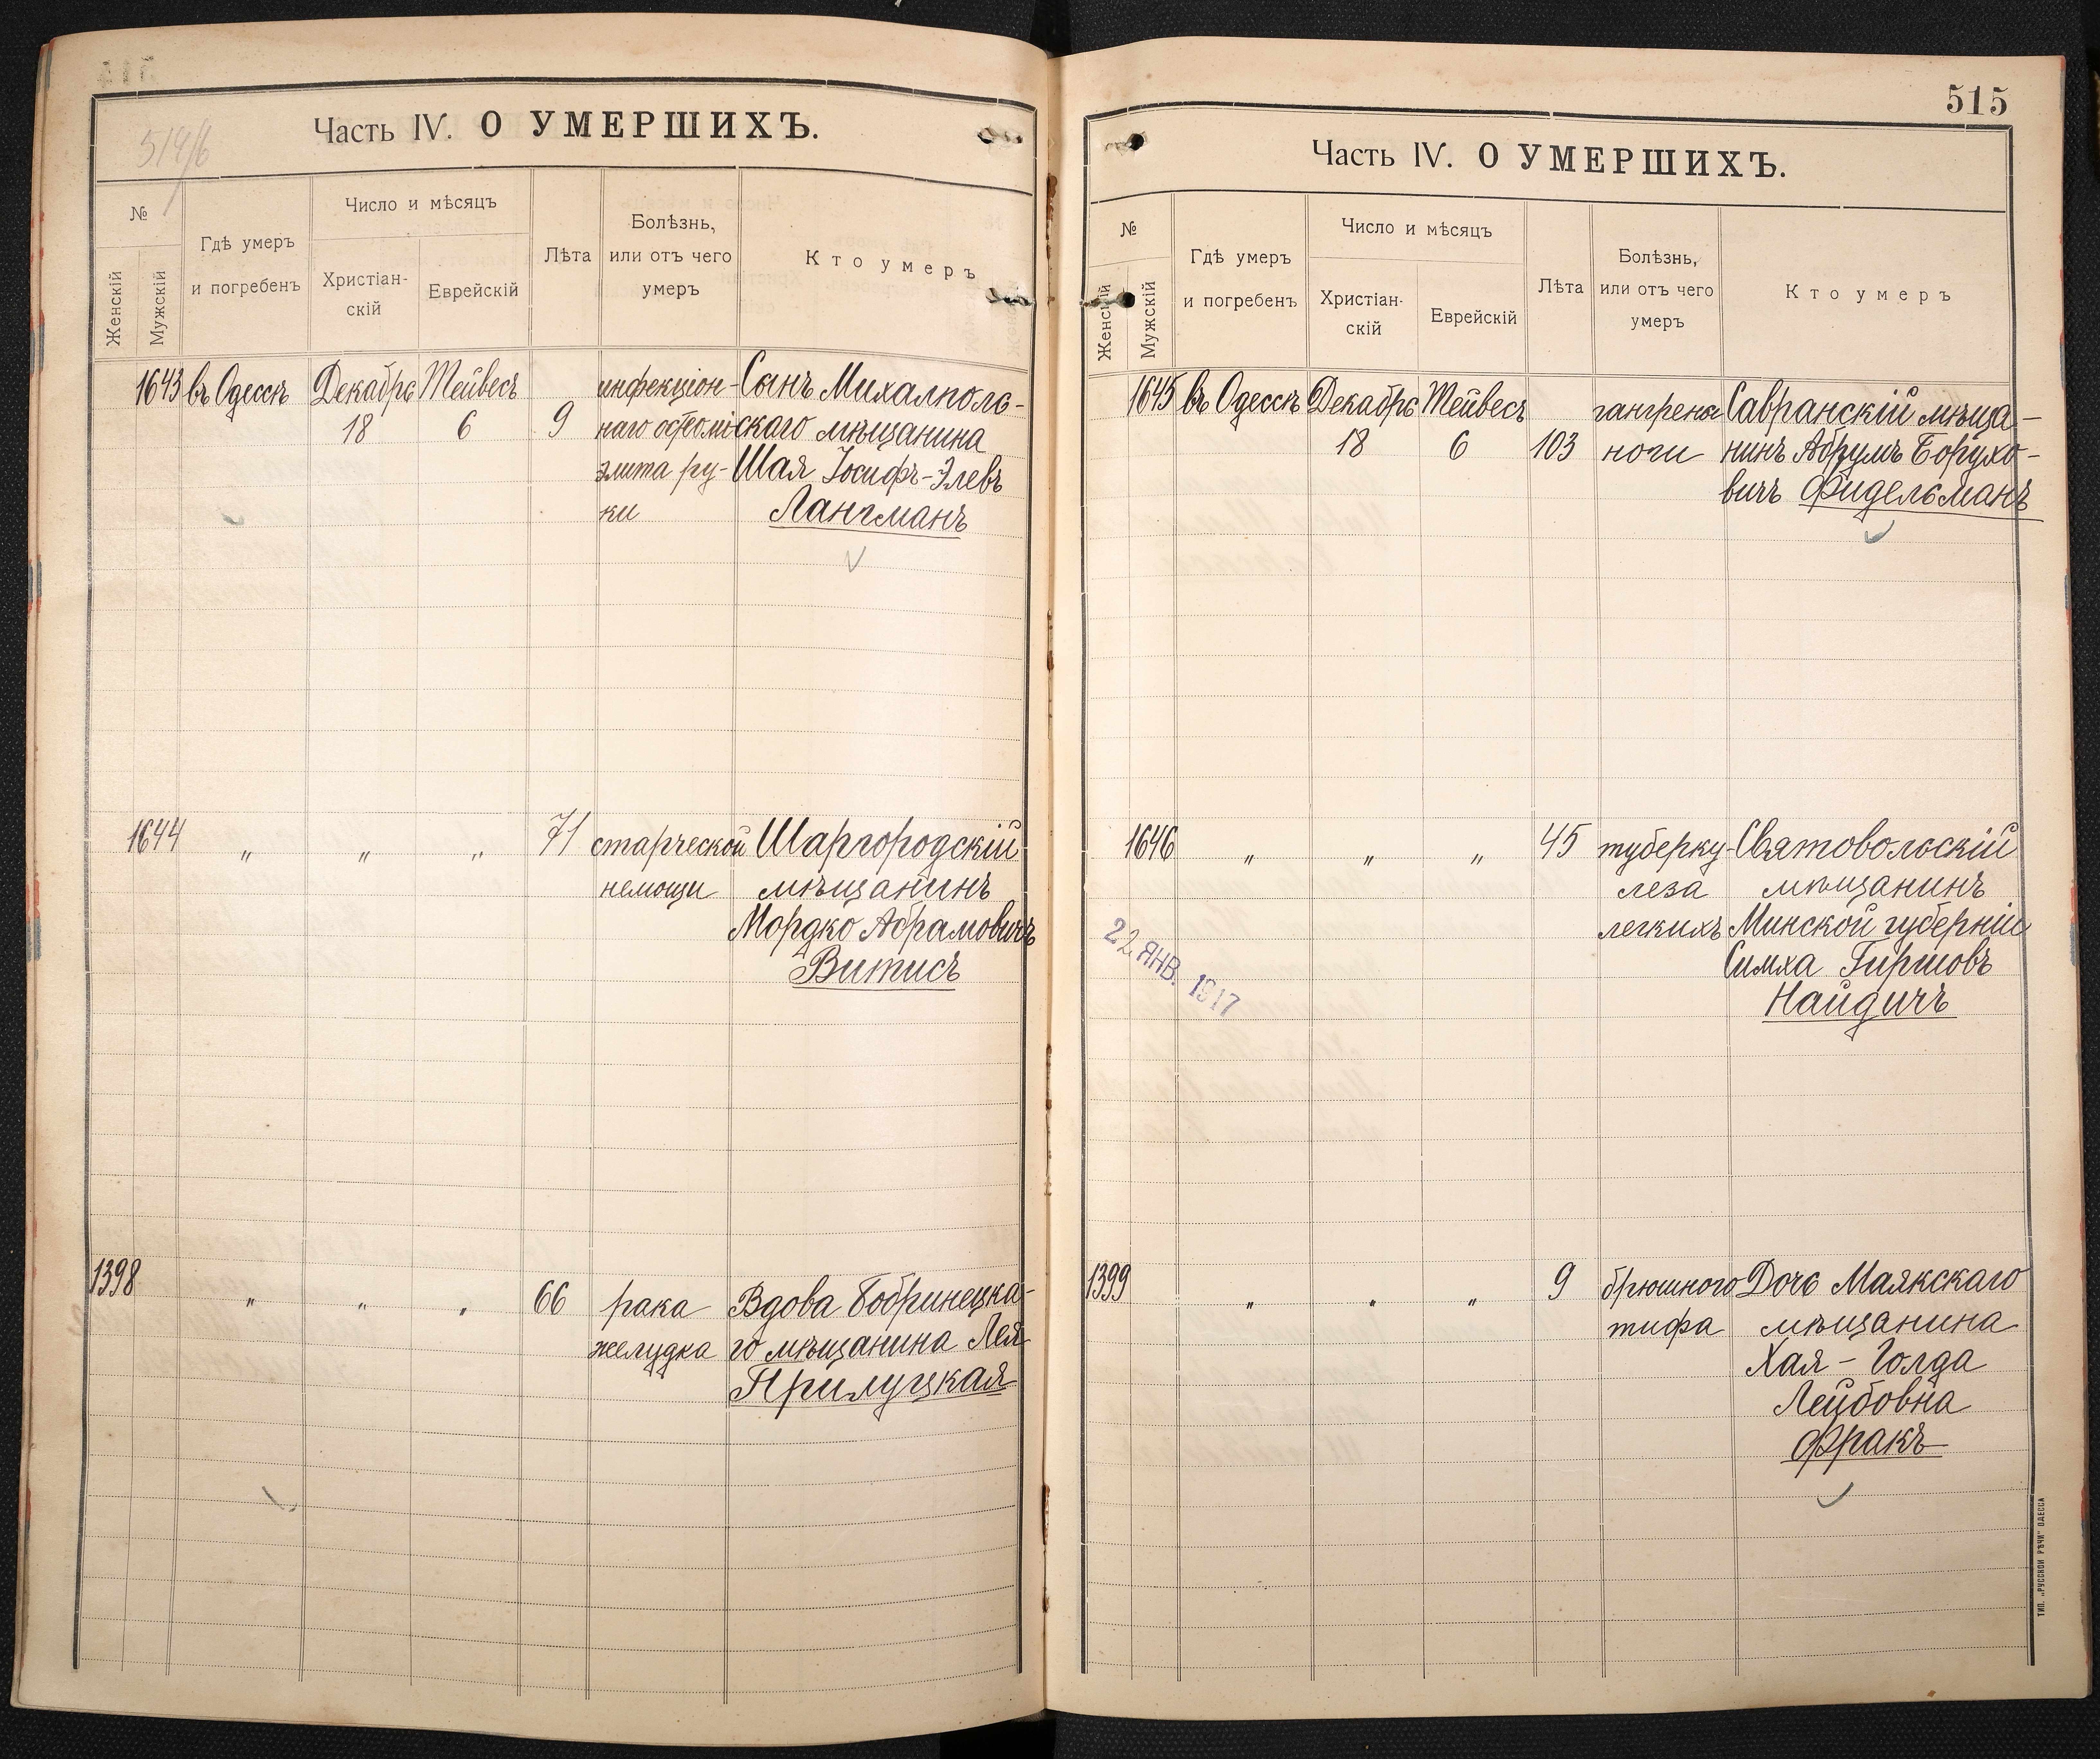 514/б
Часть IV. О УМЕРШИХЪ.
№
Женскій
Мужскій
Гдѣ умеръ
и погребенъ
Число и мѣсяцъ
Христіан-
скій
Еврейскій
Лѣта
Болѣзнь,
или отъ чего
умеръ
Кто умеръ
1643 въ Одессѣ Декабрь Тейвесъ инфекціон- Сынъ Михалполь-
18 6 9 наго остеомі- скаго мѣщанина
элита ру- Шая Іосифъ-Элевъ
ки Лангманъ
1644 " " " 71 старческой Шаргородскій
немощи мѣщанинъ
Мордко Абрамовичъ
Витисъ
1398 " " " 66 рака Вдова Бобринецка-
желудка го мѣщанина Лея
Прилуцкая
515
Часть IV. О УМЕРШИХЪ.
№
Женскій
Мужскій
Гдѣ умеръ
и погребенъ
Число и мѣсяцъ
Христіан-
скій
Еврейскій
Лѣта
Болѣзнь,
или отъ чего
умеръ
Кто умеръ
1645 въ Одессѣ Декабрь Тейвесъ гангрены Савранскій мѣща-
18 6 103 ноги нинъ Абрумъ Борухо-
вичъ Фидельманъ
1646 " " " 45 туберку- Святовольскій
леза мѣщанинъ
легкихъ Минской губерніи
Симха Гиршовъ
Найдичъ
22 ЯНВ. 1917
1399 " " " 9 брюшного Дочь Маякскаго
тифа мѣщанина
Хая-Голда
Лейбовна
Фракъ
ТИП. „РУССКОЙ РѢЧИ" ОДЕССА